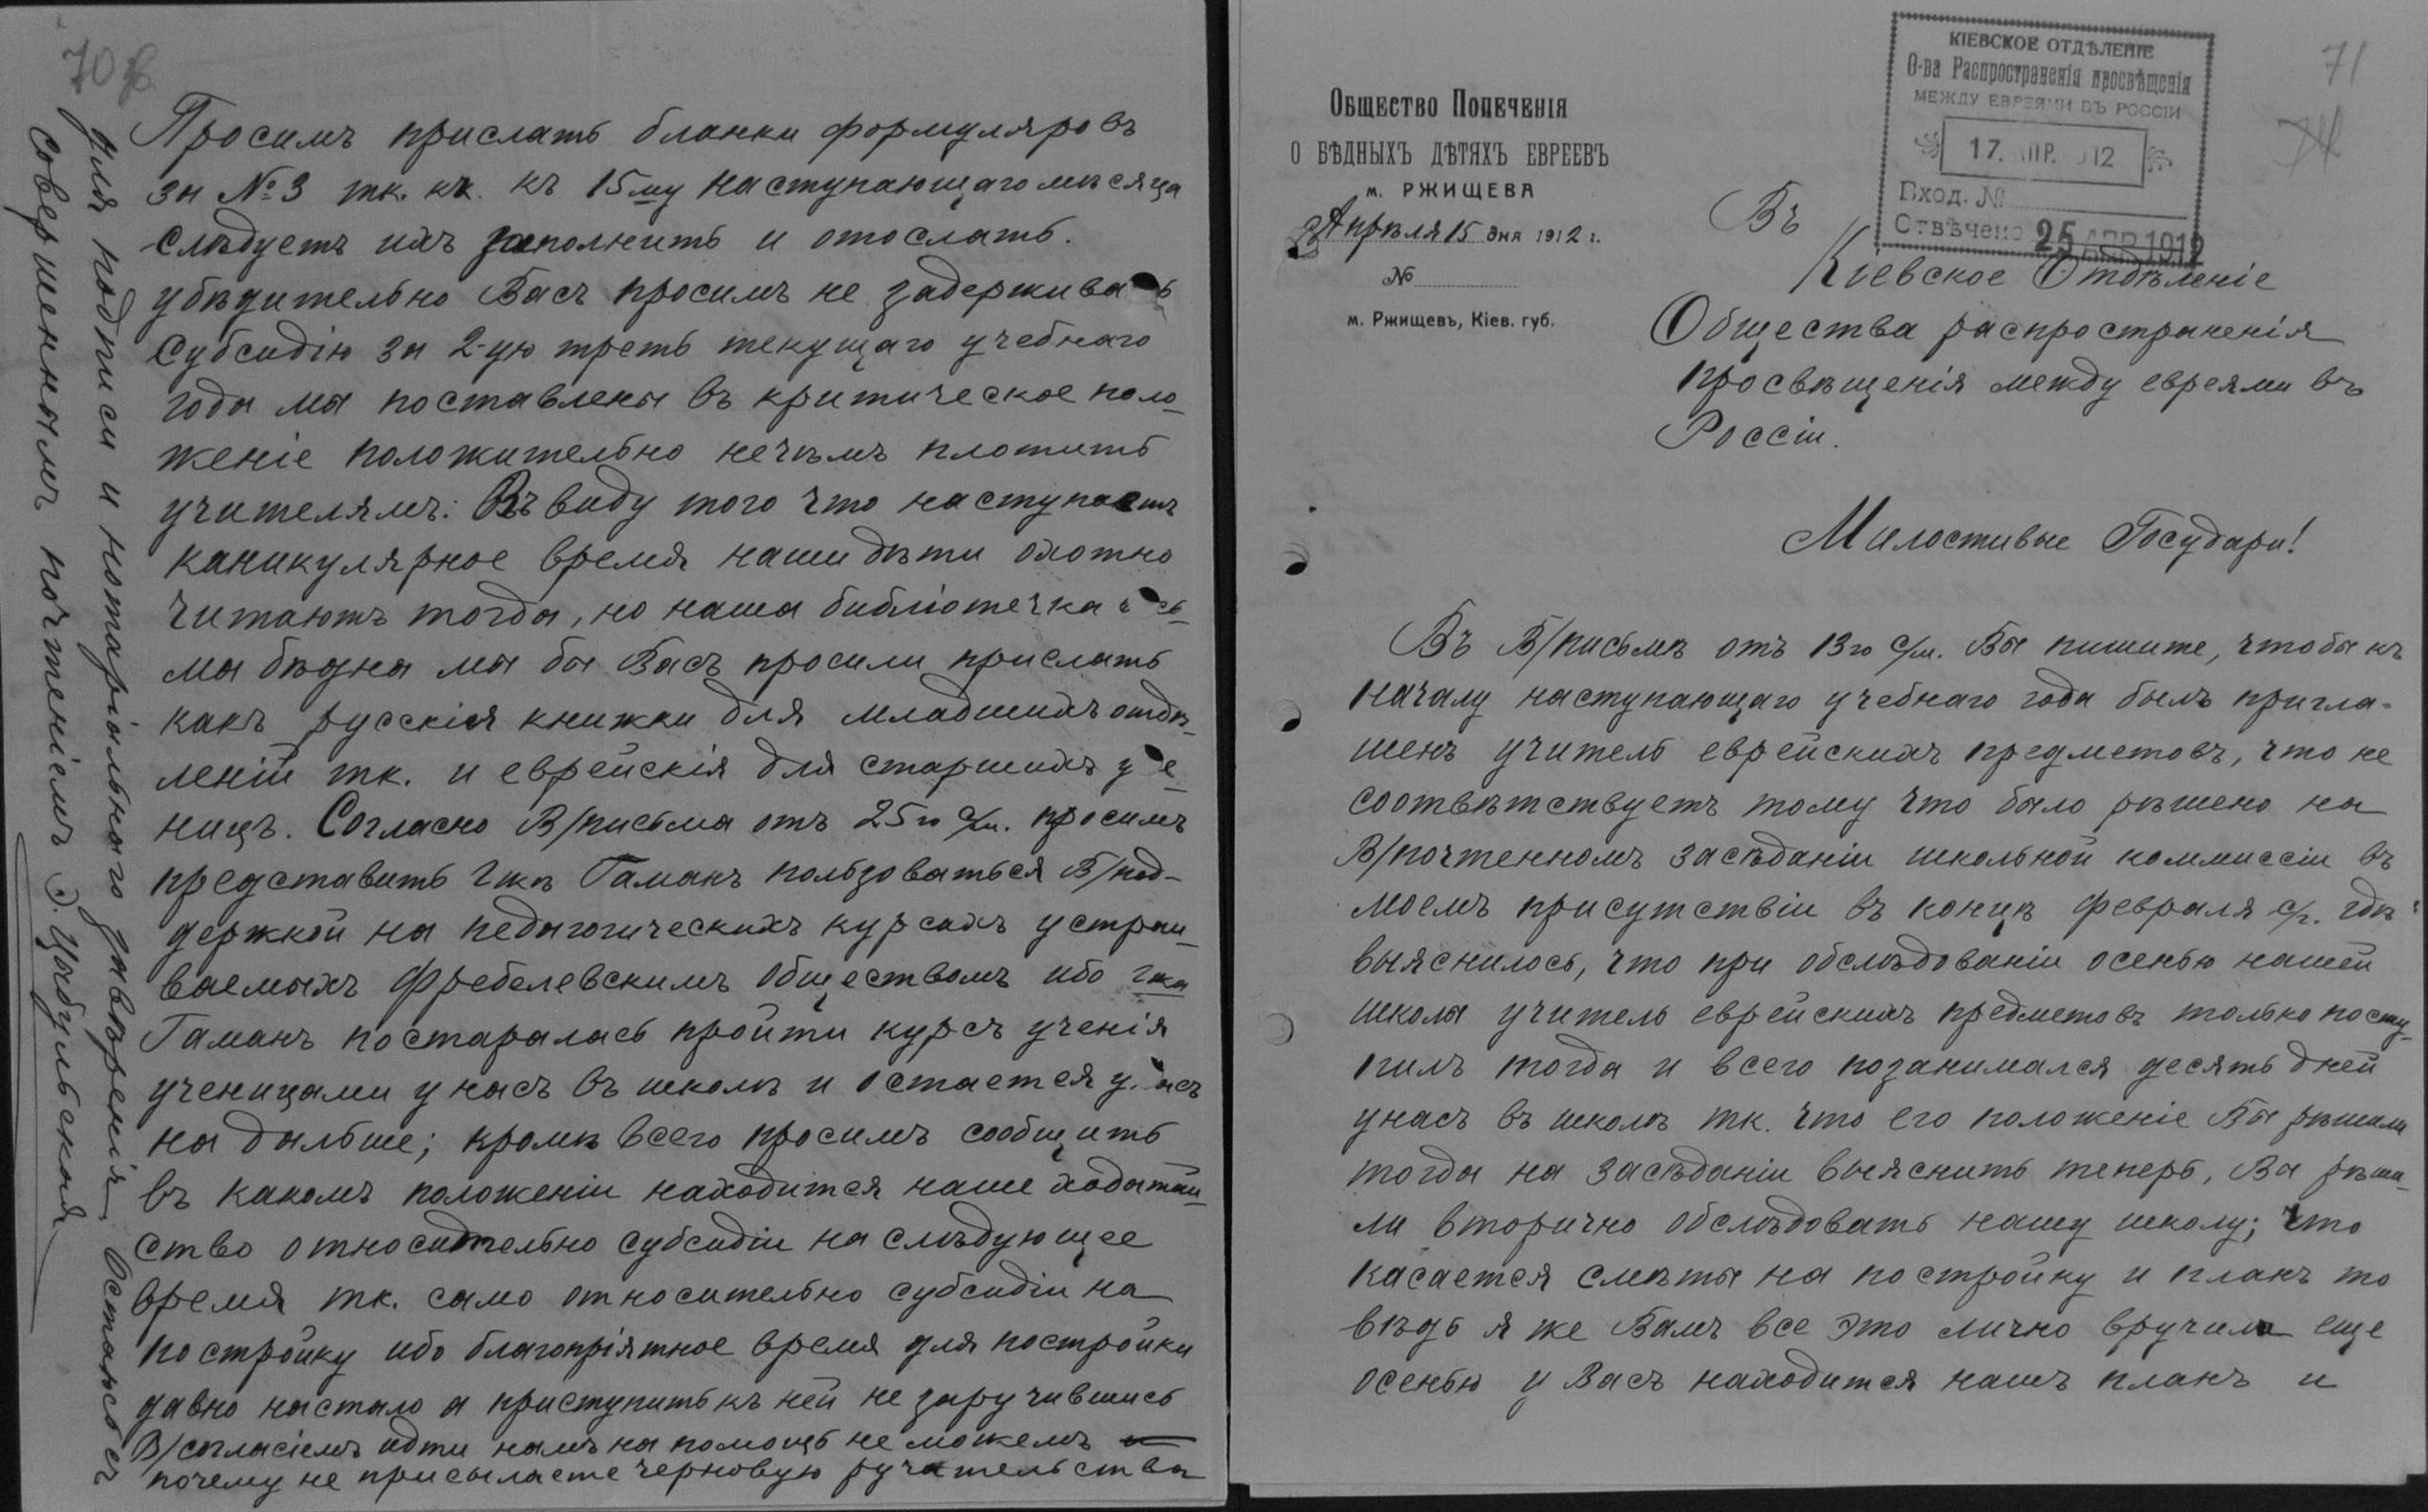 70 об.
Просимъ прислать бланки формуляровъ
за № 3 тк. кк. къ 15му наступающаго мѣсяца
слѣдуетъ ихъ заполнить и отослать.
убѣдительно Васъ просимъ не задерживать
Субсидію за 2-ую треть текущаго учебнаго
года мы поставлены въ критическое поло-
женіе положительно нечѣмъ плотить
учителямъ. Въ виду того что наступаетъ
каникулярное время наши дѣти охотно
читаютъ тогда, но наша библіотечка весь-
ма бѣдна мы бы Васъ просили прислать
какъ русскія книжки для младшихъ отдѣ-
леній тк. и еврейскія для старшихъ уче-
ницъ. Согласно В/письма отъ 25го с/м. просимъ
представить гжѣ Гаманъ пользоваться В/под-
держкой на педагогическихъ курсахъ устраи-
ваемыхъ Фребелевскимъ Обществомъ ибо гжа
Гаманъ постаралась пройти курсъ ученія
ученицами у насъ въ школѣ и остается у насъ
на дальше; кромѣ всего просимъ сообщить
въ какомъ положеніи находится наше ходатай-
ство относительно субсидіи на слѣдующее
время тк. само относительно субсидіи на
постройку ибо благопріятное время для постройки
давно настало а приступить къ ней не заручившись
В/согласіемъ идти намъ на помощь не можемъ
почему не присылаете черновую ручательства
для подписи и нотаріальнаго завѣренія. Остаюсь съ
совершеннымъ почтеніемъ Э. Цыбульская
71
КІЕВСКОЕ ОТДѢЛЕНІЕ
О-ва Распространенія просвѣщенія
МЕЖДУ ЕВРЕЯМИ ВЪ РОССІИ
17. АПР. 912
Вход. №
Отвѣчено 25 АПР 1912
Общество Попеченія
О БѢДНЫХЪ ДѢТЯХЪ ЕВРЕЕВЪ
м. РЖИЩЕВА
Апрѣля 15 дня 1912 г.
№
м. Ржищевъ, Кіев. губ.
Въ
Кіевское Отдѣленіе
Общества распространенія
просвѣщенія между евреями въ
Россіи.
Милостивые Государи!
Въ В/письмѣ отъ 13го с/м. Вы пишите, чтобы къ
началу наступающаго учебнаго года былъ пригла-
шенъ учитель еврейскихъ предметовъ, что не
соотвѣтствуетъ тому что было рѣшено на
В/почтенномъ засѣданіи школьной коммиссіи въ
моемъ присутствіи въ концѣ февраля с/г. гдѣ
выяснилось, что при обслѣдованіи осенью нашей
школы учитель еврейскихъ предметовъ только посту-
пилъ тогда и всего позанимался десять дней
у насъ въ школѣ тк. что его положеніе Вы рѣшили
тогда на засѣданіи выяснить теперь, Вы рѣши-
ли вторично обслѣдовать нашу школу; что
касается смѣты на постройку и планъ то
вѣдь я же Вамъ все это лично вручила еще
осенью у Васъ находится нашъ планъ и